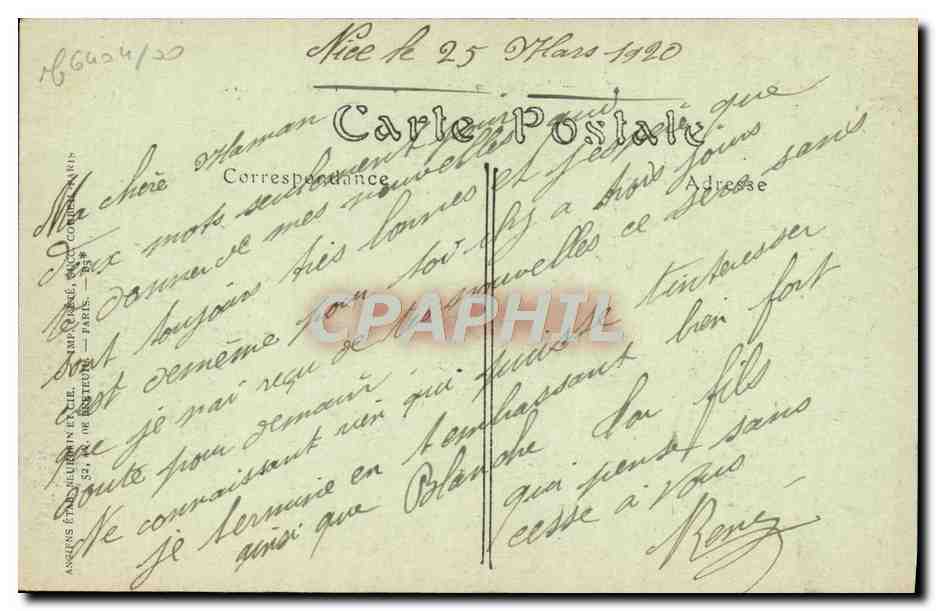 Nice le 25 Mars 1920
Carte Postale
Correspondance
Adresse
Ma chère Maman
Deux mots seulement pour
te donner de mes nouvelles qui
sont toujours très bonnes et j'espère que
c'est de même pour toi il y a trois jours
que je n'ai reçu de tes nouvelles ce sera sans
doute pour demain.
Ne connaissant rien qui puisse t'interesser
je termine en t'embrassant bien fort
ainsi que Blanche Ton fils
qui pense sans
cesse à vous
René
ANCIENS ÉTAB. NEURDEIN ET CIE. IMP. CRÉTÉ, SUCC. CORBEIL-PARIS
52, AV. DE BRETEUIL — PARIS.
CPAPHIL